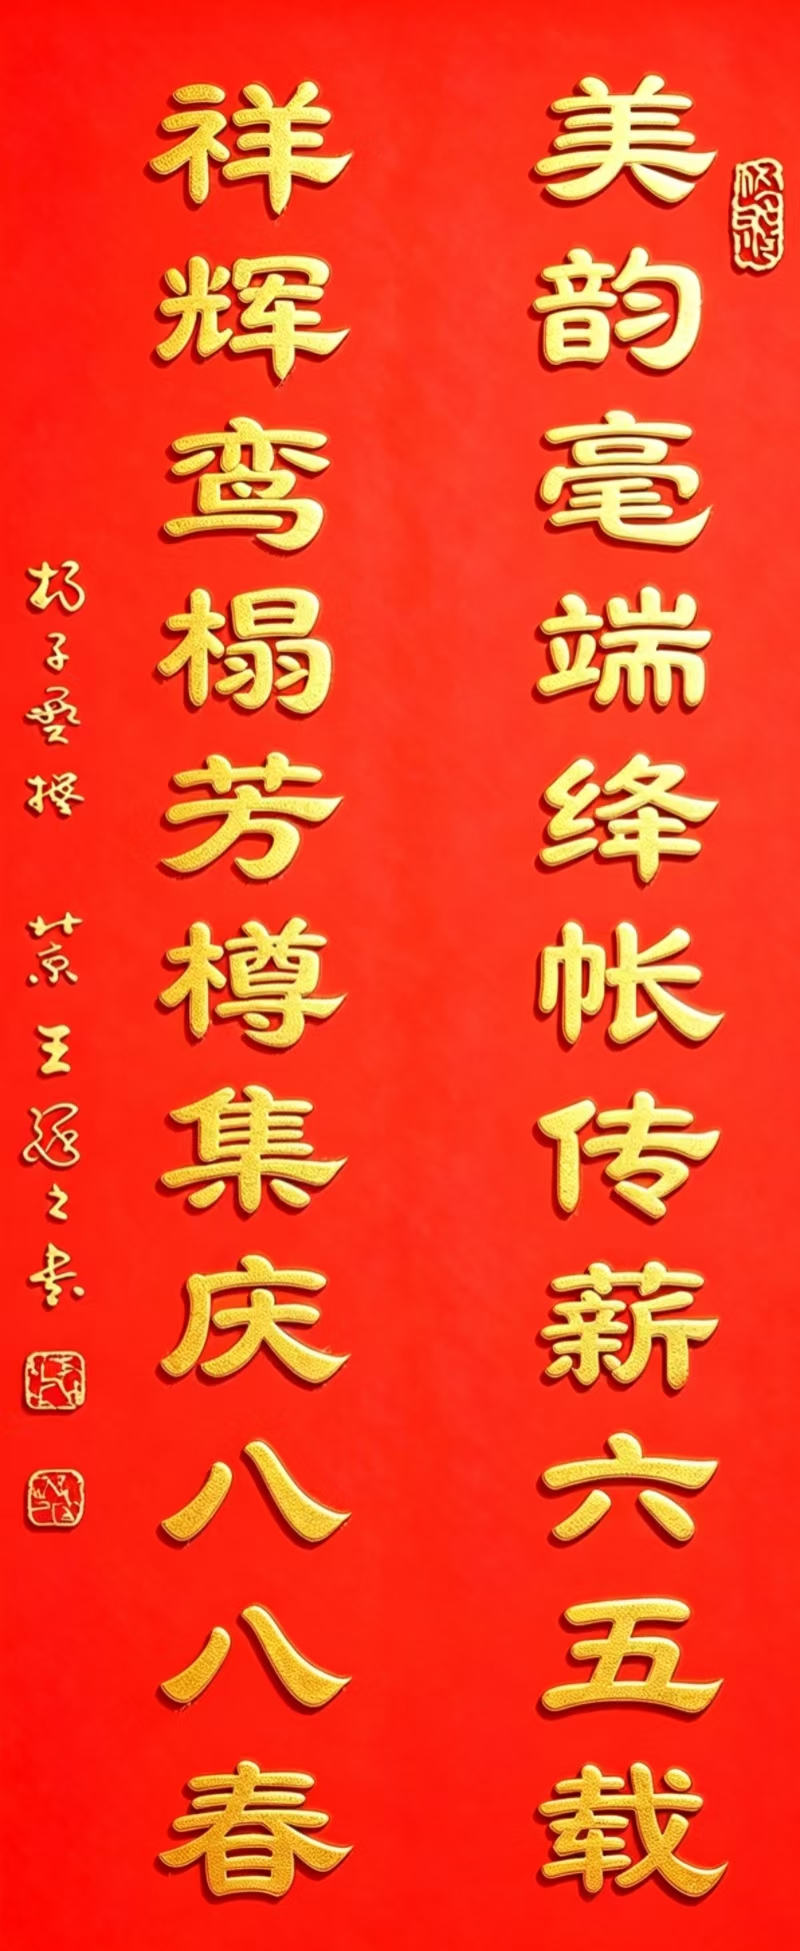 美韵毫端绛帐传薪六五载
祥辉鸾榻芳樽集庆八八春
杨子云撰 景王 之书